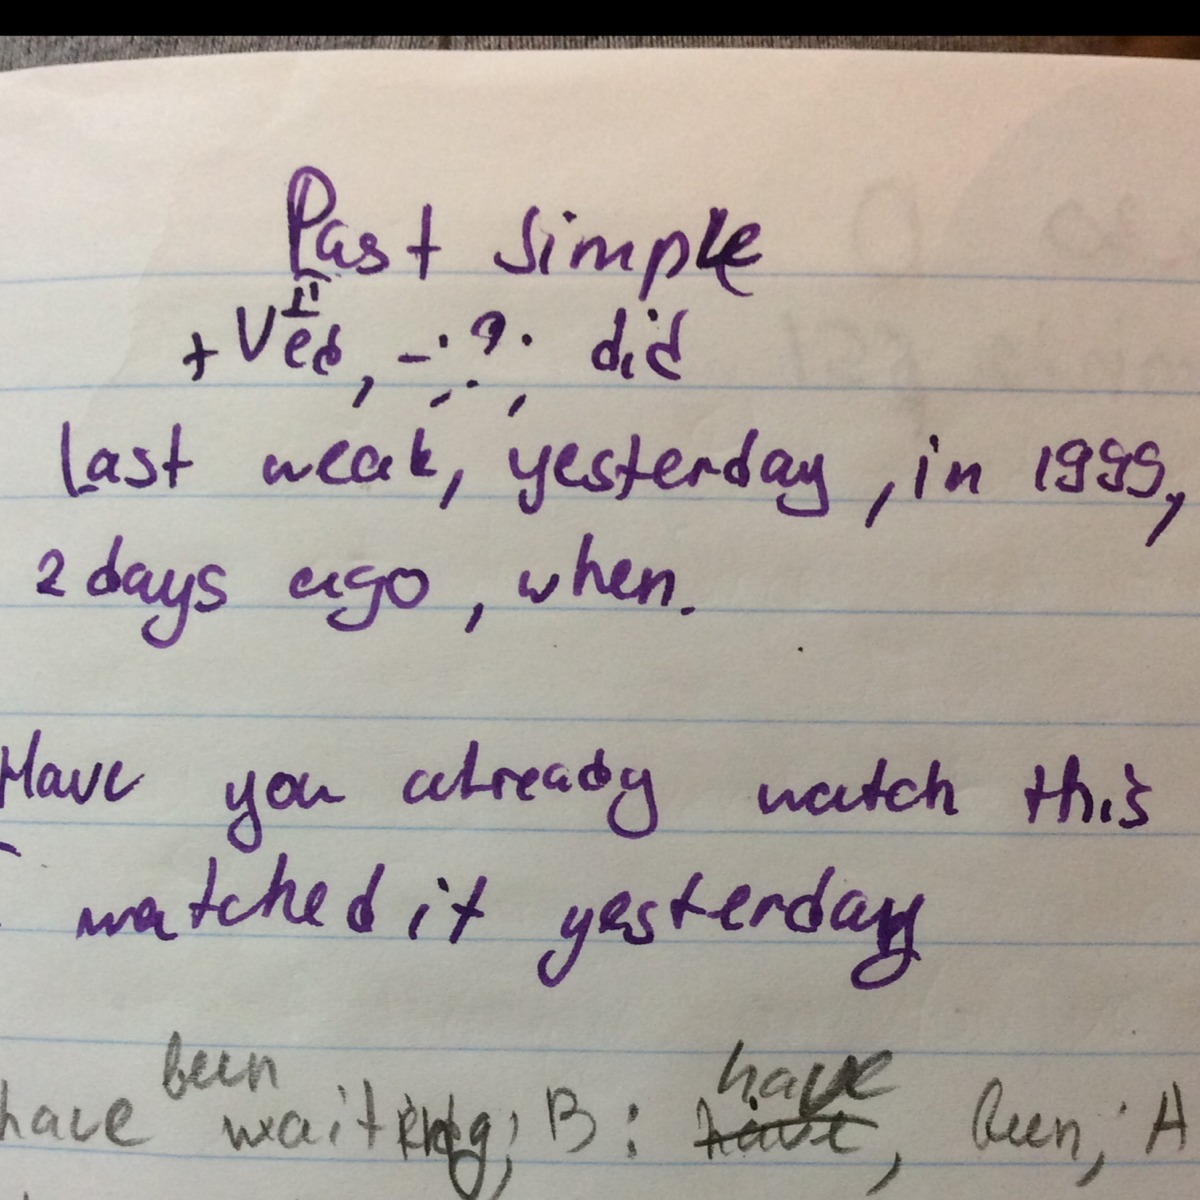 Past Simple
+ V II ed, - ; ? ; did
last weak, yesterday, in 1999,
2 days ago, when.
Have you already watch this
watched it yesterday
been have
have waiting; B: have, been; A